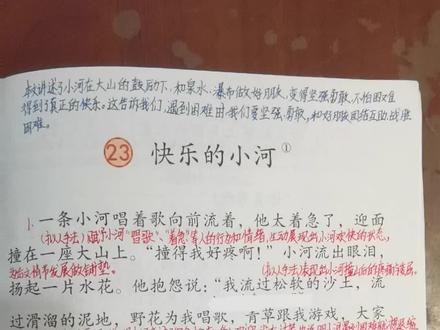 本文讲述了小河在大山的鼓励下,和泉水、瀑布做好朋友,变得坚强勇敢,不怕困难
得到了真正的快乐。这告诉我们,遇到困难时我们要坚强、勇敢,和好朋友团结互助,战胜
困难。
23 快乐的小河①
1. 一条小河唱着歌向前流着,他太着急了,迎面
(拟人手法)小河“唱歌”“着急”等人的行为和情绪,生动展现出小河欢快的状态,
撞在一座大山上。“撞得我好疼啊!”小河流出眼泪,
为后文情节发展做铺垫。
(拟人手法)表现出小河撞山后的疼痛与委屈。
扬起一片水花。他抱怨说:“我流过松软的沙土,流
过滑溜的泥地,野花为我唱歌,青草跟我游戏,大家